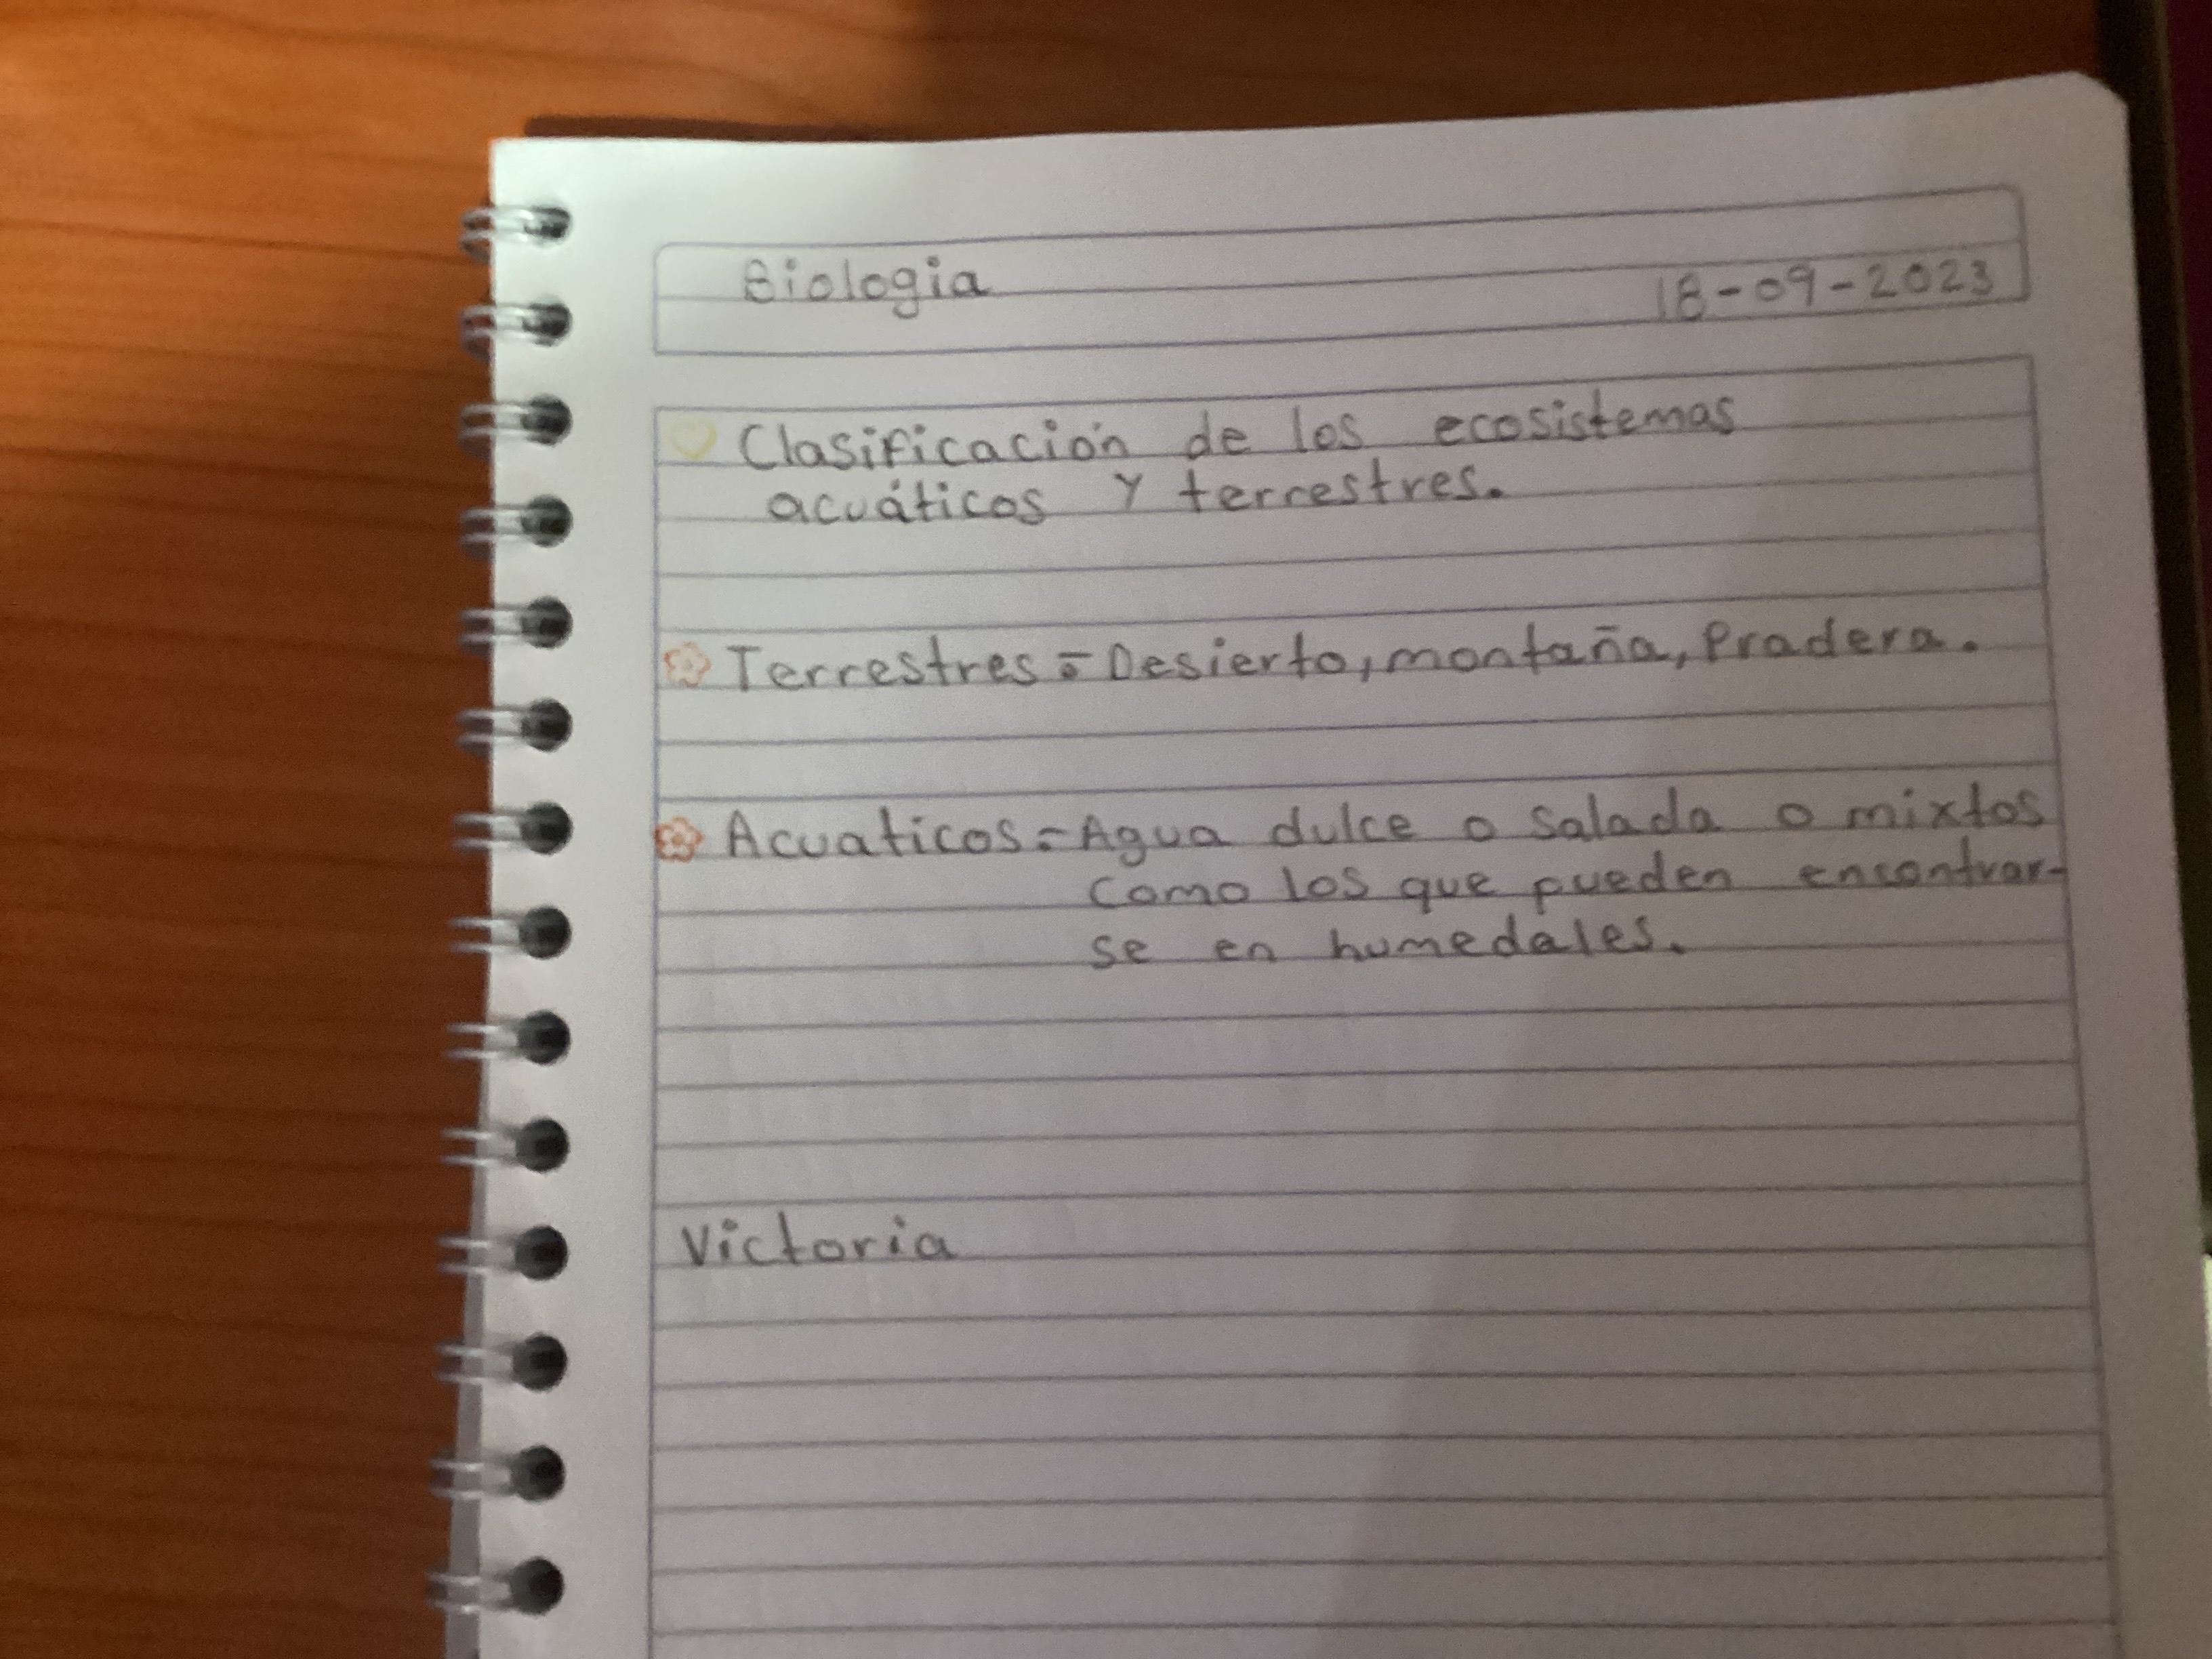 Biologia
18-09-2023
Clasificación de los ecosistemas
acuáticos y terrestres.
Terrestres = Desierto, montaña, Pradera.
Acuaticos = Agua dulce o salada o mixtos
como los que pueden encontrar-
se en humedales.
Victoria